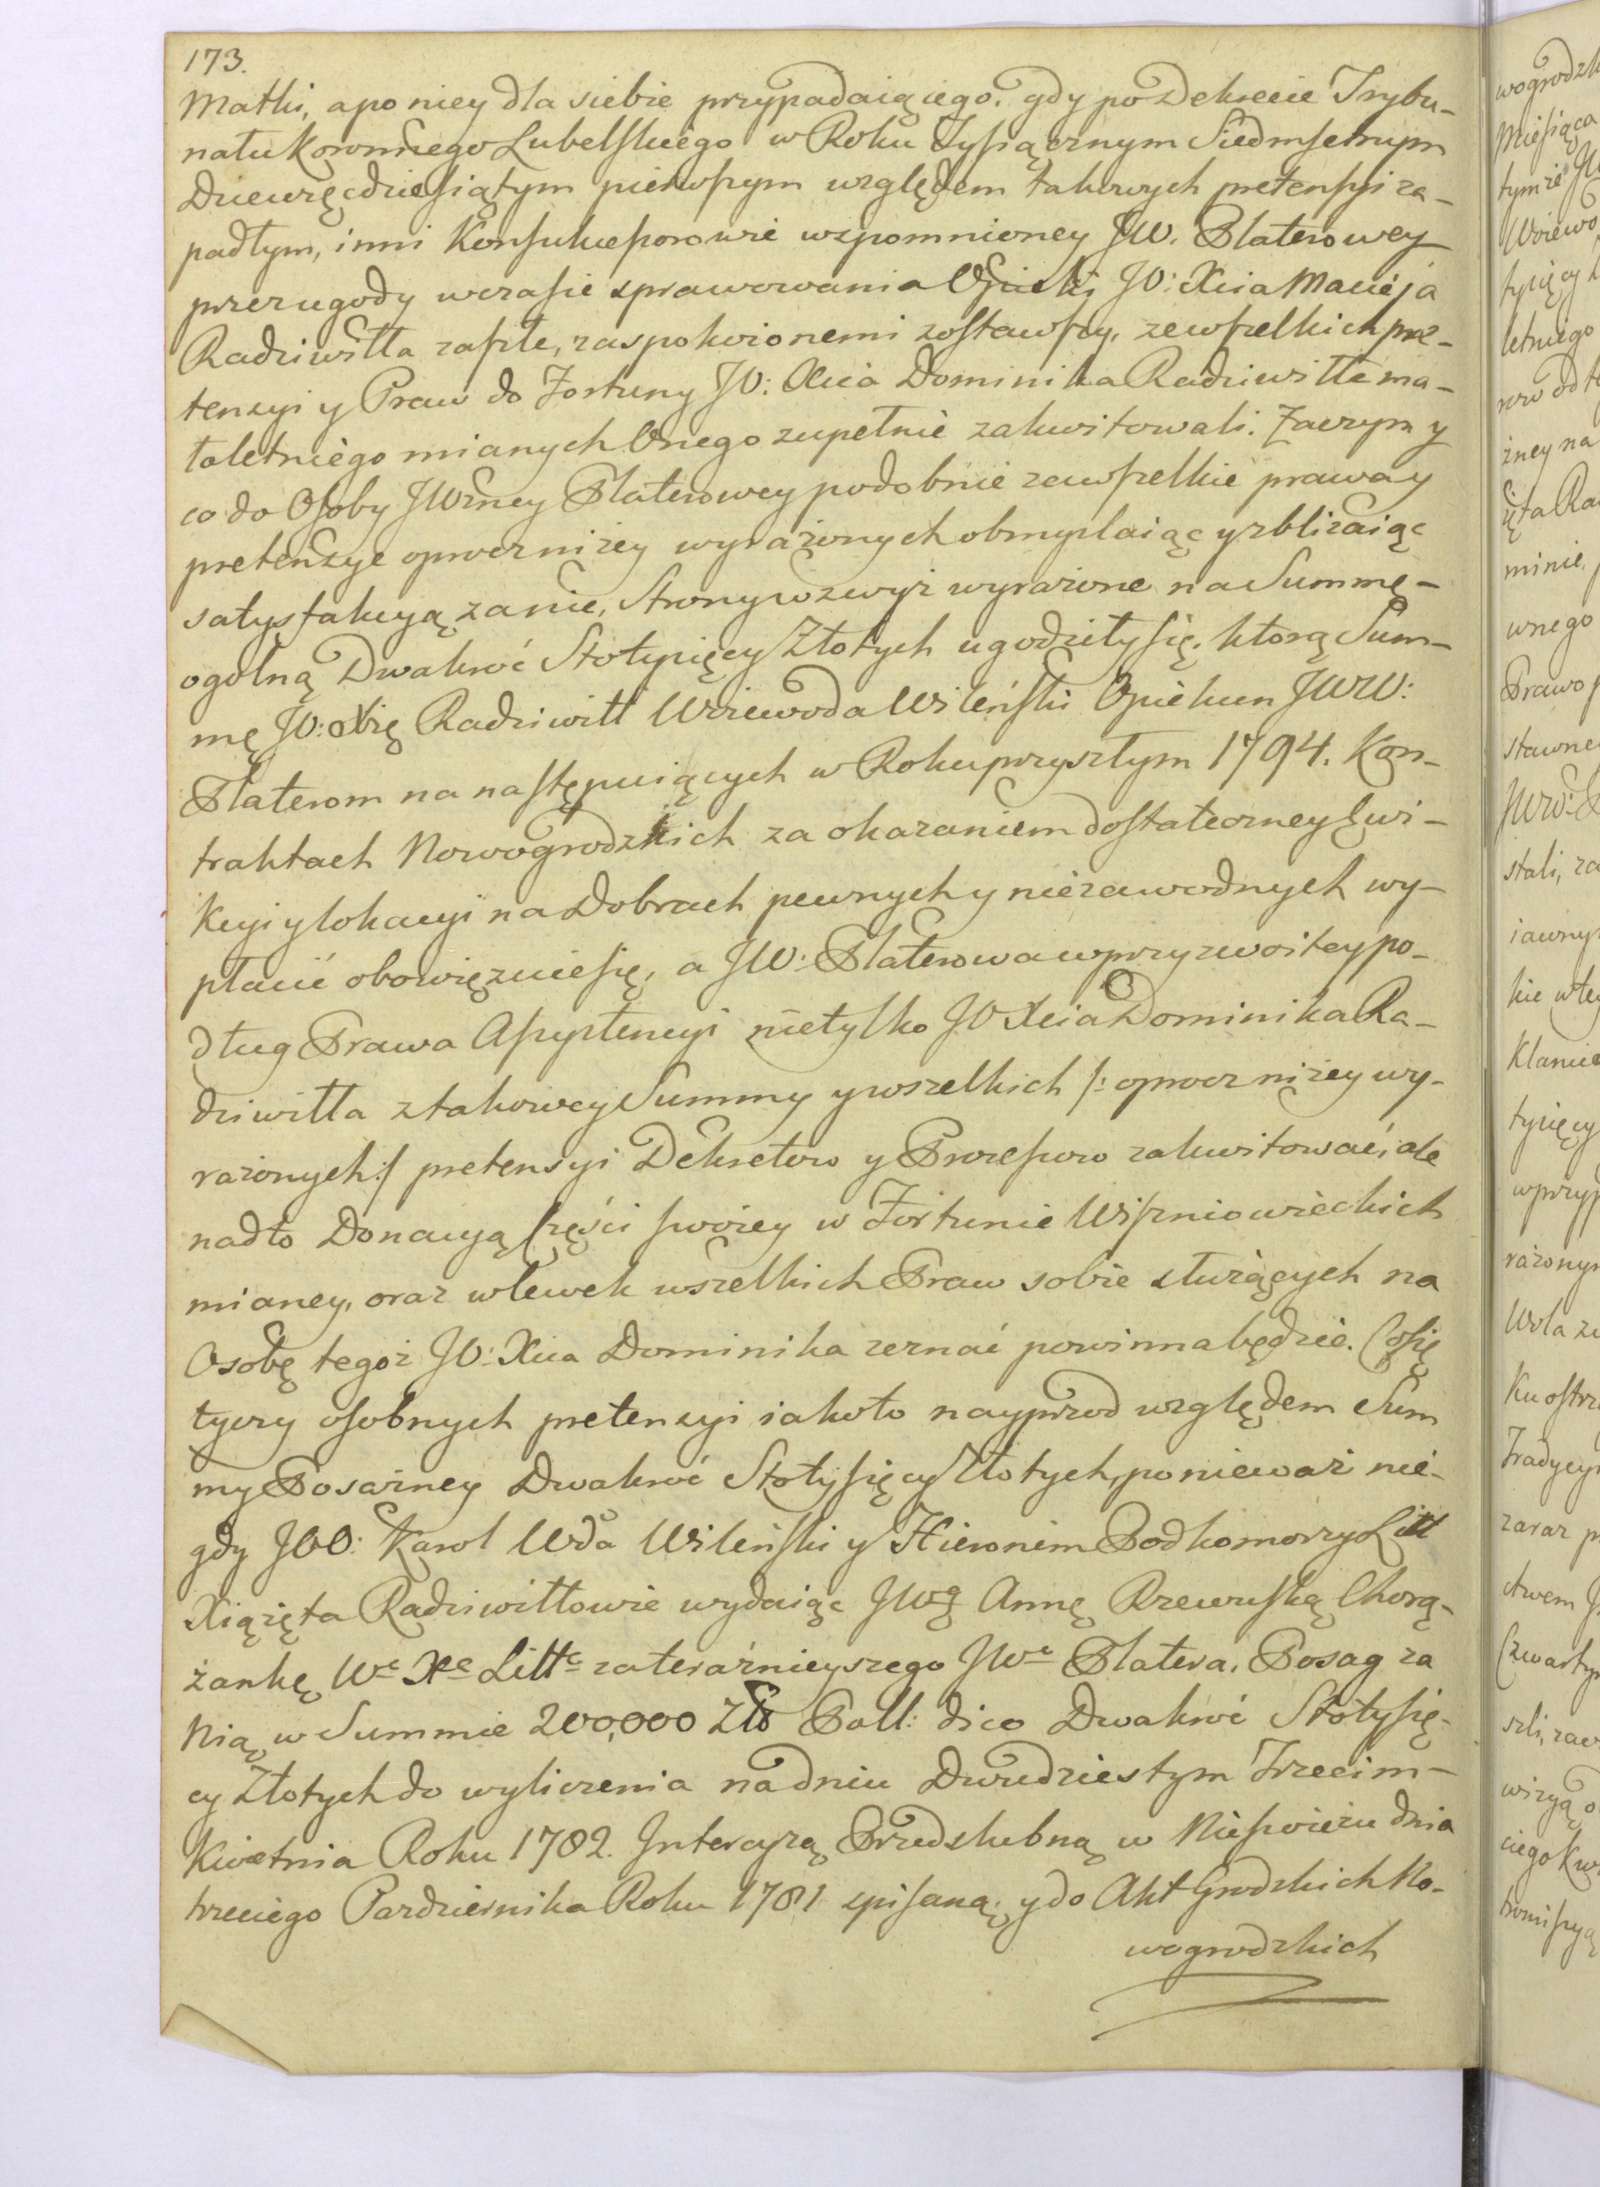 173.
Matki, a po niey dla siebie przypadaiącego. gdy po Dekrecie Trybu-
nału Koronnego Lubelskiego w Roku Tysiącznym Siedmsetnym
Dziewięćdziesiątym pierwszym względem takowych pretensyi za-
padłym, inni Konsukcesorowie wspomnioney JW. Platerowey
przez ugody w czasie sprawowania Opieki JO: Xcia Macieja
Radziwiłła zaszłe, zaspokoionemi zostawszy, ze wszelkich pre-
tensyi y Praw do Fortuny JO: Xcia Dominika Radziwiłła ma-
łoletniego mianych Onego zupełnie zakwitowali. Zaczym y
co do Osoby JWżney Platerowey podobnie ze wszelkie prawa y
pretensye oprocz niżey wyrażonych obmyslaiąc y zbliżaiąc
satysfakcyą za nie, Strony wzwyż wyrażone na Summę
ogolną Dwakroć Stotysięcy Złotych ugodziły się. którą Sum-
mę JO: Xię Radziwiłł Woiewoda Wileński Opiekun JWW:
Platerom na następuiących w Roku przyszłym 1794. Kon-
traktach Nowogrodzkich za okazaniem dostateczney Ewi-
kcyi y lokacyi na Dobrach pewnych y niezawodnych wy-
płacić obowięzuie się, a JW: Platerowa w przyzwoitey po-
dług Prawa Assystencyi nietylko JO Xcia Dominika Ra-
dziwiłła z takowey Summy y wszelkich /: oprocz niżey wy-
rażonych :/ pretensyi Dekretow y Processow zakwitować, ale
nadto Donacyą Części swoiey w Fortunie Wiszniowieckich
mianey, oraz wlewek wszelkich Praw sobie służących na
Osobę tegoż JO: Xcia Dominika zeznać powinna będzie. Co się
tycze osobnych pretensyi iako to nayprzod względem Sum
my Posażney Dwakroć Stotysięcy Złotych, ponieważ nie-
gdy JOO: Karol Wda Wileński y Hieronim Podkomorzy Litt
Xiążęta Radziwiłłowie wydaiąc JWą Annę Rzewuską Chorą-
żankę We Xe Litte za teraźnieyszego JWe Platera, Posag za
Nią w Summie 200,000 Zło Poll: dico Dwakroć Stotysię-
cy Złotych do wyliczenia na dniu Dwudziestym Trzecim
Kwietnia Roku 1782. Intercyzą Przedslubną w Nieswieżu dnia
trzeciego Pazdziernika Roku 1781 spisaną, y do Akt Grodzkich No-
wogrodzkich